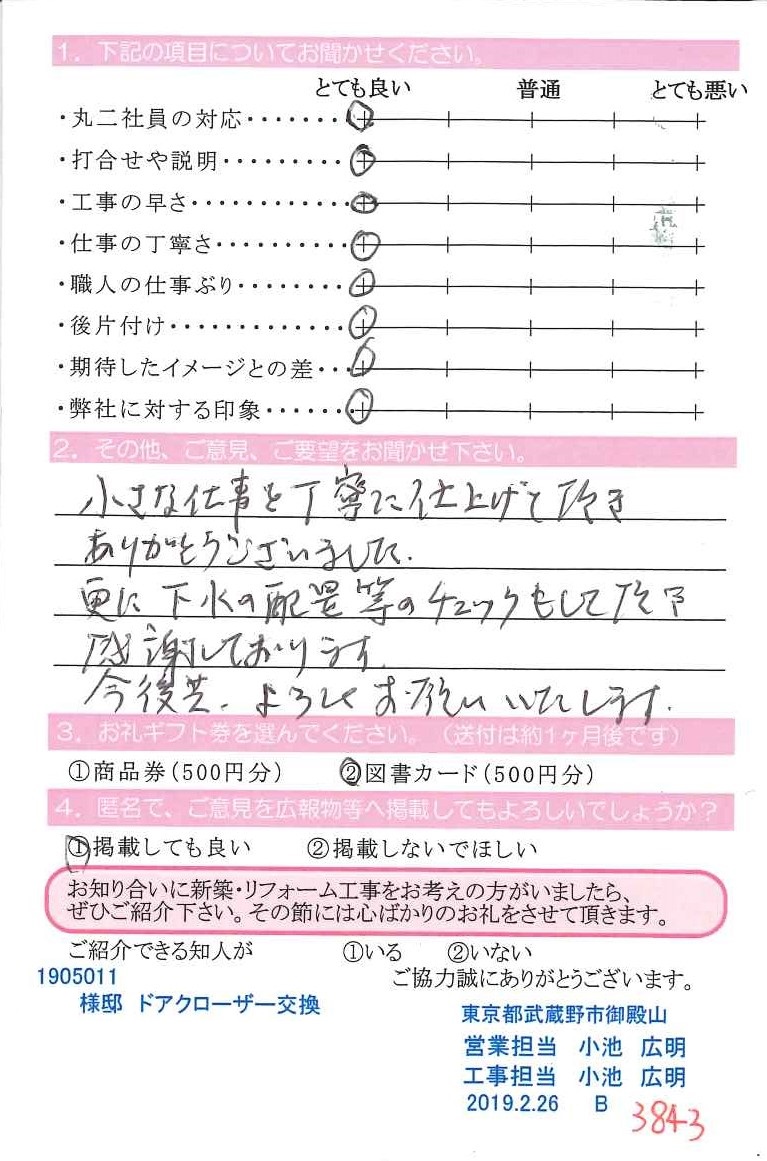 1．下記の項目についてお聞かせください。
とても良い 普通 とても悪い
・丸二社員の対応・・・・・・・
・打合せや説明・・・・・・・・・
・工事の早さ・・・・・・・・・・・・
・仕事の丁寧さ・・・・・・・・・・
・職人の仕事ぶり・・・・・・・・
・後片付け・・・・・・・・・・・・・
・期待したイメージとの差・・・
・弊社に対する印象・・・・・・・
2．その他、ご意見、ご要望をお聞かせ下さい。
小さな仕事を丁寧に仕上げて頂き
ありがとうございました.
更に下水の配置等のチェックもして頂き
感謝しております.
今後共、よろしくお願いいたします.
3．お礼ギフト券を選んでください。（送付は約1ヶ月後です）
①商品券（500円分） ②図書カード（500円分）
4．匿名で、ご意見を広報物等へ掲載してもよろしいでしょうか？
①掲載しても良い ②掲載しないでほしい
お知り合いに新築・リフォーム工事をお考えの方がいましたら、
ぜひご紹介下さい。その節には心ばかりのお礼をさせて頂きます。
ご紹介できる知人が ①いる ②いない
1905011
ご協力誠にありがとうございます。
様邸 ドアクローザー交換
東京都武蔵野市御殿山
営業担当 小池 広明
工事担当 小池 広明
2019.2.26 B
3843